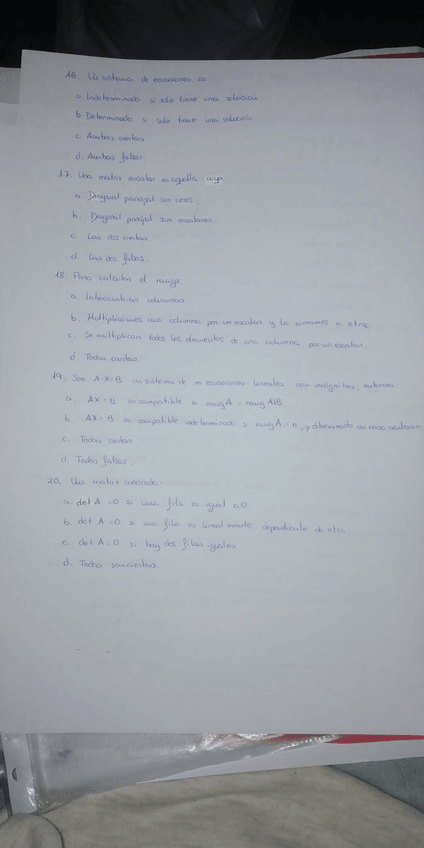 16. Un sistema de ecuaciones es
a. Indeterminado si solo tiene una solución
b. Determinado si solo tiene una solución
c. Ambas ciertas
d. Ambas falsas.
17. Una matriz escalar es aquella cuya
a. Diagonal principal son ceros.
b. Diagonal principal son escalares.
c. Las dos ciertas.
d. Las dos falsas.
18. Para calcular el rango
a. Intercambiar columnas
b. Multiplicamos una columna por un escalar y la sumamos a otra.
c. Se multiplican todos los elementos de una columna por un escalar.
d. Todas ciertas.
19. Sea A·X=B un sistema de m ecuaciones lineales con incógnitas, entonces
a. AX=B es compatible si rang A = rang A|B
b. AX=B es compatible indeterminado si rang A = n, y determinado en caso contrario
c. Todas ciertas.
d. Todas falsas.
20. Una matriz cuadrada:
a. det A=0 si una fila es igual a 0
b. det A=0 si una fila es linealmente dependiente de otra.
c. det A=0 si hay dos filas iguales
d. Todas son ciertas.